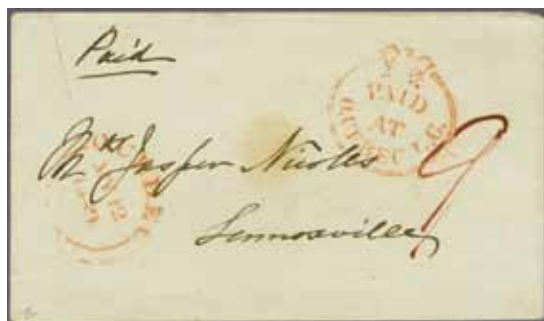 Paid
PAID
AT
QUEBEC L.C.
9
Mrs Jasper Nicolls
QUEBEC
Lennoxville